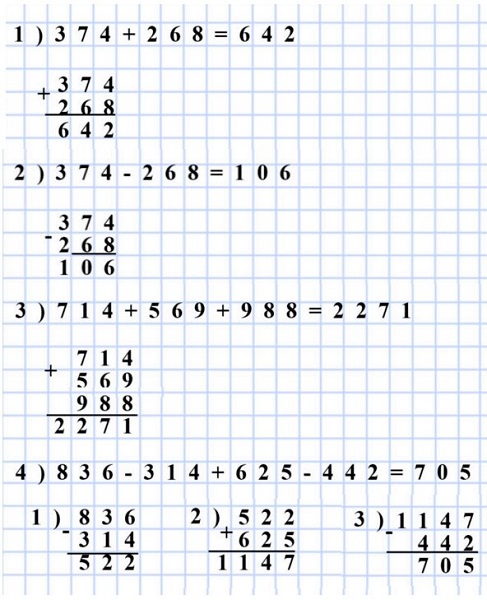 1) 374+268=642
+ 374
268
642
2) 374-268=106
- 374
268
106
3) 714+569+988=2271
+ 714
569
988
2271
4) 836-314+625-442=705
1) 836 2) 522 3) 1147
- 314 + 625 - 442
522 1147 705